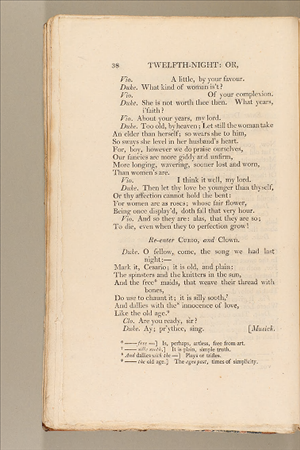 38 TWELFTH-NIGHT: OR,
Vio. A little, by your favour.
Duke. What kind of woman is't?
Vio. Of your complexion.
Duke. She is not worth thee then. What years,
i'faith?
Vio. About your years, my lord.
Duke. Too old, by heaven; Let still the woman take
An elder than herself; so wears she to him,
So sways she level in her husband's heart.
For, boy, however we do praise ourselves,
Our fancies are more giddy and unfirm,
More longing, wavering, sooner lost and worn,
Than women's are.
Vio. I think it well, my lord.
Duke. Then let thy love be younger than thyself,
Or thy affection cannot hold the bent:
For women are as roses; whose fair flower,
Being once display'd, doth fall that very hour.
Vio. And so they are: alas, that they are so;
To die, even when they to perfection grow!
Re-enter Curio, and Clown.
Duke. O fellow, come, the song we had last
night:—
Mark it, Cesario; it is old, and plain:
The spinsters and the knitters in the sun,
And the free maids, that weave their thread with
bones,
Do use to chaunt it; it is silly sooth,
And dallies with the innocence of love,
Like the old age.
Clo. Are you ready, sir?
Duke. Ay; pr'ythee, sing. [Musick.
—— free —] Is, perhaps, artless, free from art.
—— silly sooth,] It is plain, simple truth.
And dallies with the —] Plays or trifles.
—— the old age.] The ages past, times of simplicity.